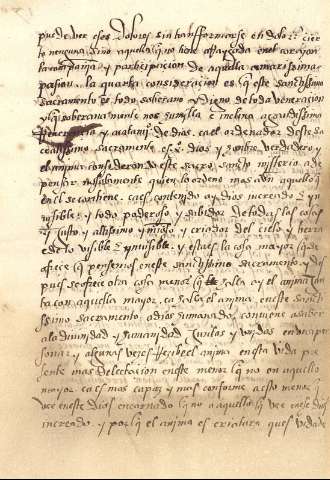 puede ver esos dolores sin transformarse en dolor cier
to ninguna sino aquella q no tiene en el coraçon
la compañia y participacion de aquella amarissima
pasion. la quarta consideracion es que este sanctissimo
sacramento es todo soberano y digno de toda veneracion
y q soberana mente nos humilla e inclina a
reverencia y acatamiento de dios. ca el ordenador deste sa
cratissimo sacramento es dios y hombre verdadero y
el anima considerando este sacro sancto misterio a de
pensar quien lo ordeno mas aun aquello q
en el se contiene. ca es contenido ay dios increado
visible y todo poderoso y sabidor de todas las cosas
y justo y altissimo y criador del cielo y tierra
e de lo visible e ynvisible. y esta es la cosa mayor q se
ofrece q pensemos en este sanctissimo sacramento y des
pues se ofrece otra cosa menor q halla ay el anima jun
ta con aquella mayor. ca halla el anima en este sanct
issimo sacramento a dios humanado. conviene a saber
a la divinidad y humanidad juntas y unidas en una per
sona. y algunas veces recibe el anima en esta vida pre
sente mas delectacion en este menor q no en aquello
mayor. ca es mas capaz y mas conforme a esto menor q
vee en este dios encarnado q no a aquello q vee en este dios
increado. y porq el anima es criatura ques